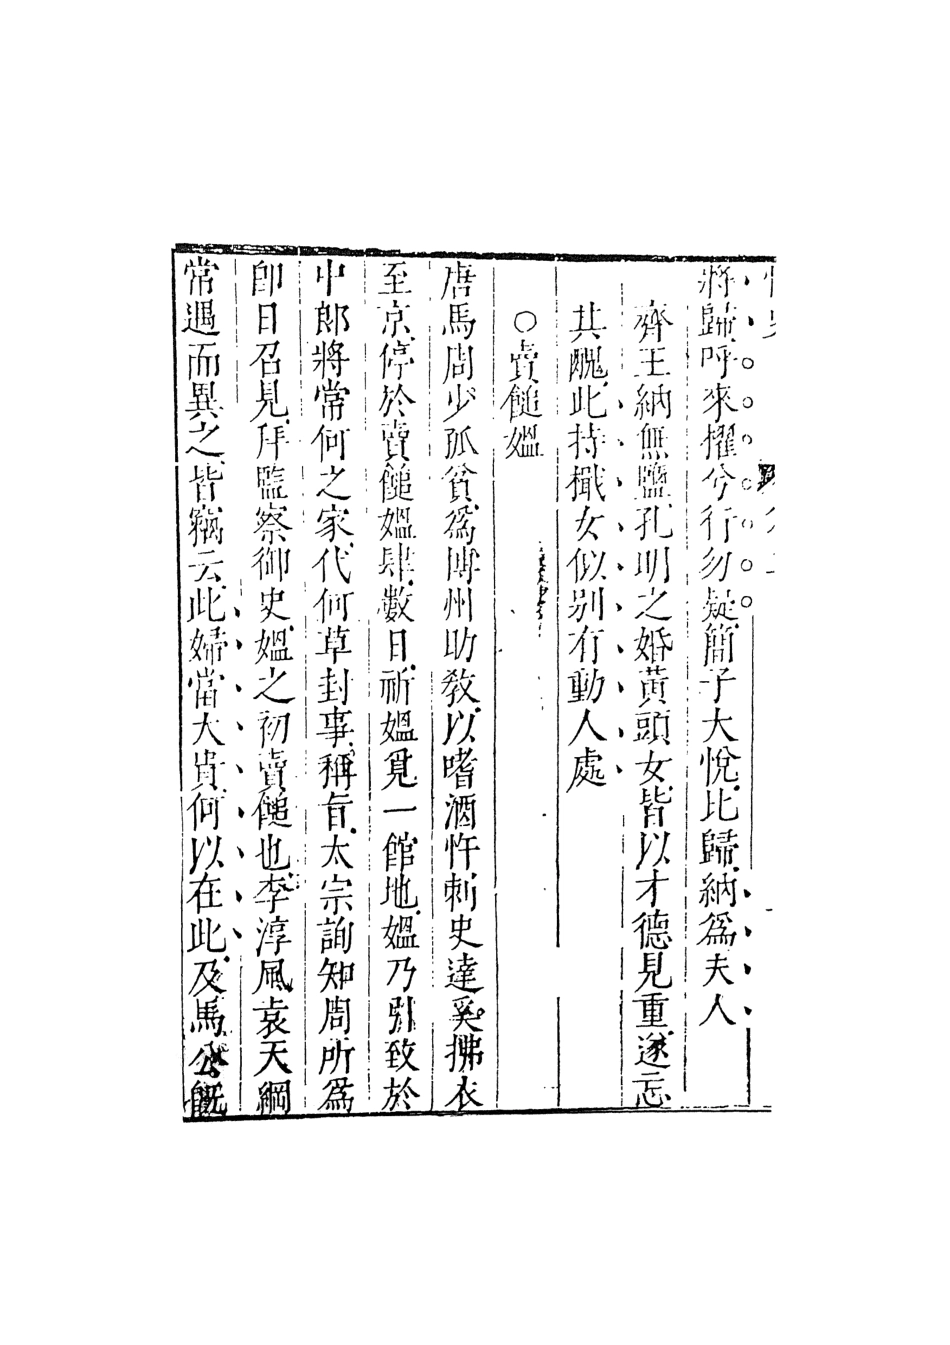 將歸呼來櫂兮行勿疑簡子大悅比歸納爲夫人
齊王納無鹽孔明之婚黃頭女皆以才德見重遂忘
其醜此持檝女似別有動人處
○賣䭔媼
唐馬周少孤貧爲博州助教以嗜酒忤刺史達奚拂衣
至京停於賣䭔媼肆數日祈媼覓一館地媼乃引致於
中郎將常何之家代何草封事稱旨太宗詢知周所爲
卽日召見拜監察御史媼之初賣䭔也李淳風袁天綱
常遇而異之皆竊云此婦當大貴何以在此及馬公旣